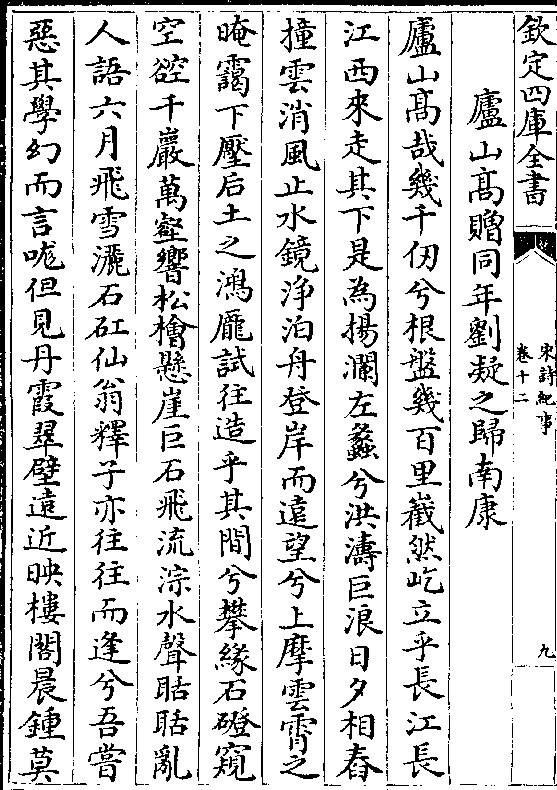 欽定四庫全書
宋詩紀事
卷十二
九
廬山髙贈同年劉凝之歸南康
廬山髙哉幾千仞兮根盤幾百里巀然屹立乎長江長
江西來走其下是為揚瀾左蠡兮洪濤巨浪日夕相舂
撞雲消風止水鏡浄泊舟登岸而遠望兮上摩雲霄之
晻靄下壓后土之鴻龐試往造乎其間兮攀緣石磴窺
空谾千巖萬壑響松檜懸崖巨石飛流淙水聲聒聒亂
人語六月飛雪灑石矼仙翁釋子亦往往而逢兮吾嘗
惡其學幻而言哤但見丹霞翠壁遠近映樓閣晨鍾莫